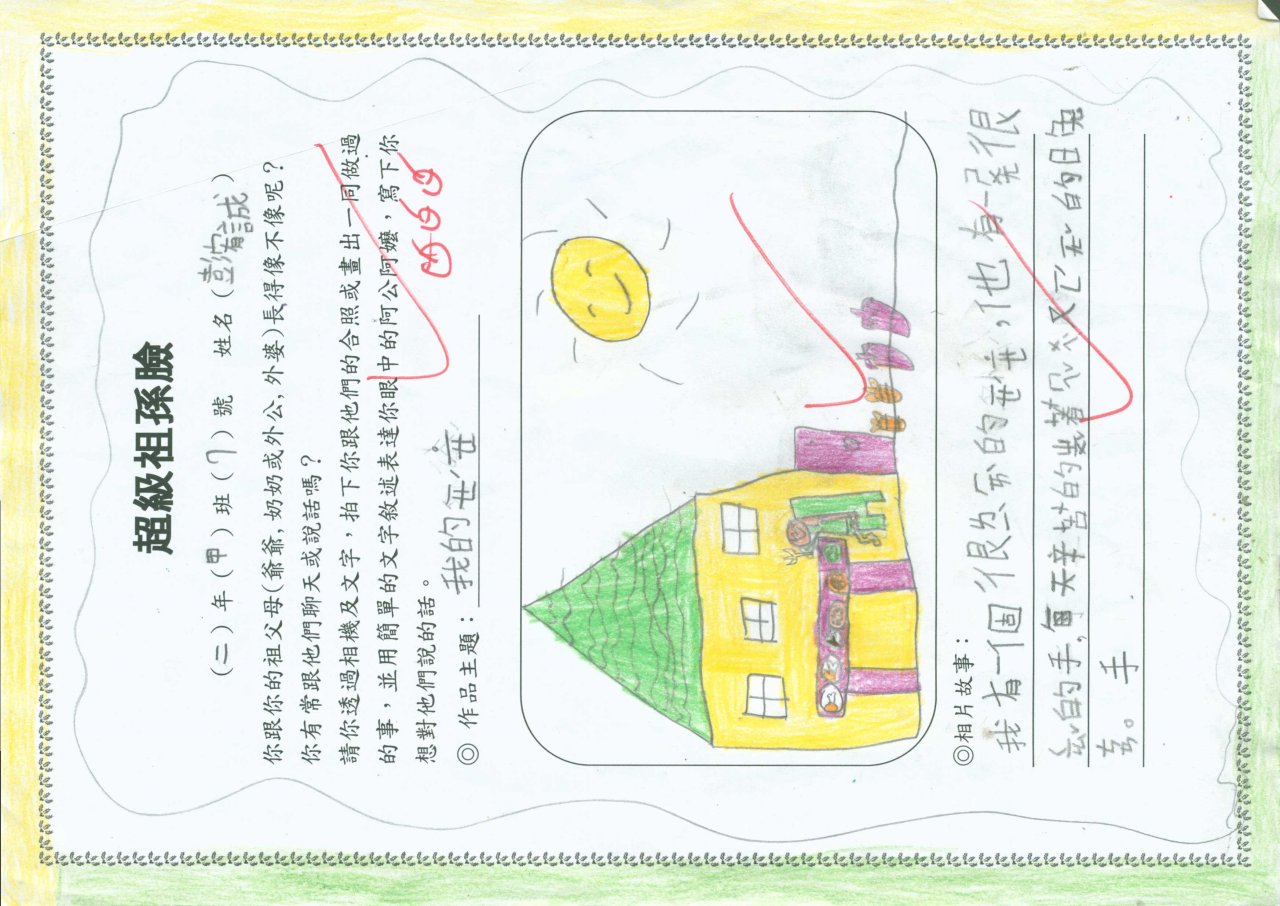 超級祖孫臉
(二)年(甲)班(7)號 姓名(彭宥誠)
你跟你的祖父母(爺爺,奶奶或外公,外婆)長得像不像呢?
你有常跟他們聊天或說話嗎?
請你透過相機及文字,拍下你跟他們的合照或畫出一同做過
的事,並用簡單的文字敘述表達你眼中的阿公阿嬤,寫下你
想對他們說的話。
◎ 作品主題:我的
◎相片故事:
我有一個很 的 ,他也有一 很
的手,每天辛苦的 著 的
。手